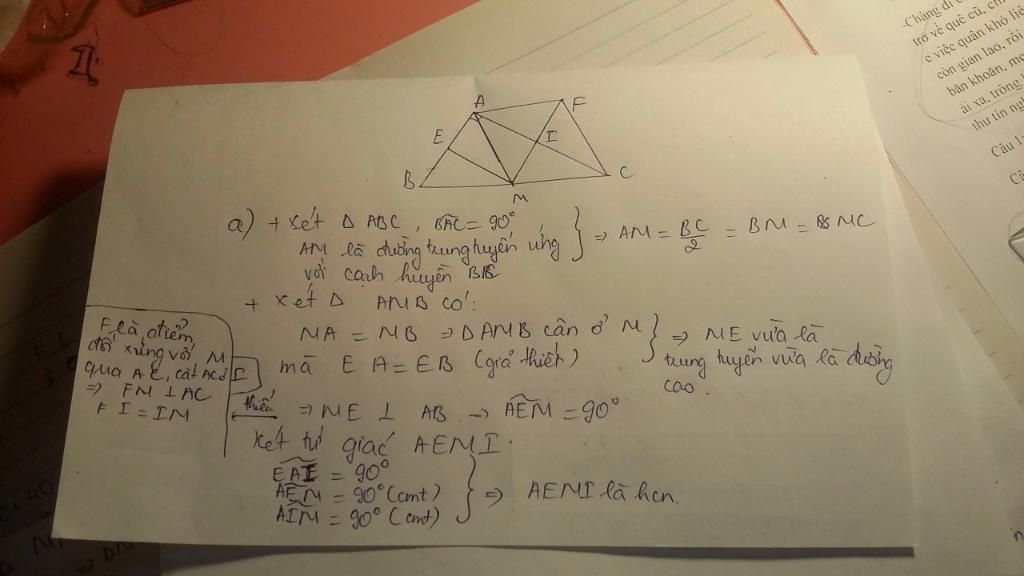 A F
E I
B M C
a) + Xét Δ ABC, BAC = 90°
AM là đường trung tuyến ứng
với cạnh huyền BC
} ⇒ AM = BC/2 = BM = MC
+ Xét Δ AMB có:
MA = MB ⇒ Δ AMB cân ở M
mà EA = EB (giả thiết)
} ⇒ ME vừa là
trung tuyến vừa là đường
cao.
⇒ ME ⊥ AB → AEM = 90°
F là điểm
đối xứng với M
qua AC, cắt AC ở I
⇒ FM ⊥ AC
FI = IM
thiếu
Xét tứ giác AEMI
EAI = 90°
AEM = 90° (cmt)
AIM = 90° (cmt)
} ⇒ AEMI là hcn.
Chặng đi c
trở về quê cũ, ch
c việc quân khó li
còn gian lao, rồi
băn khoăn, m
ái xa, trông
thư tín ng
Câu 1